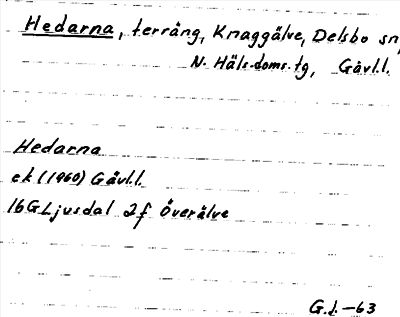 Hedarna, terräng, Knaggälve, Delsbo sn,
N. Häls. doms. tg, Gävl.l.
Hedarna
ek (1960) Gävl.l.
16G Ljusdal 2f Överälve
G.J. -63